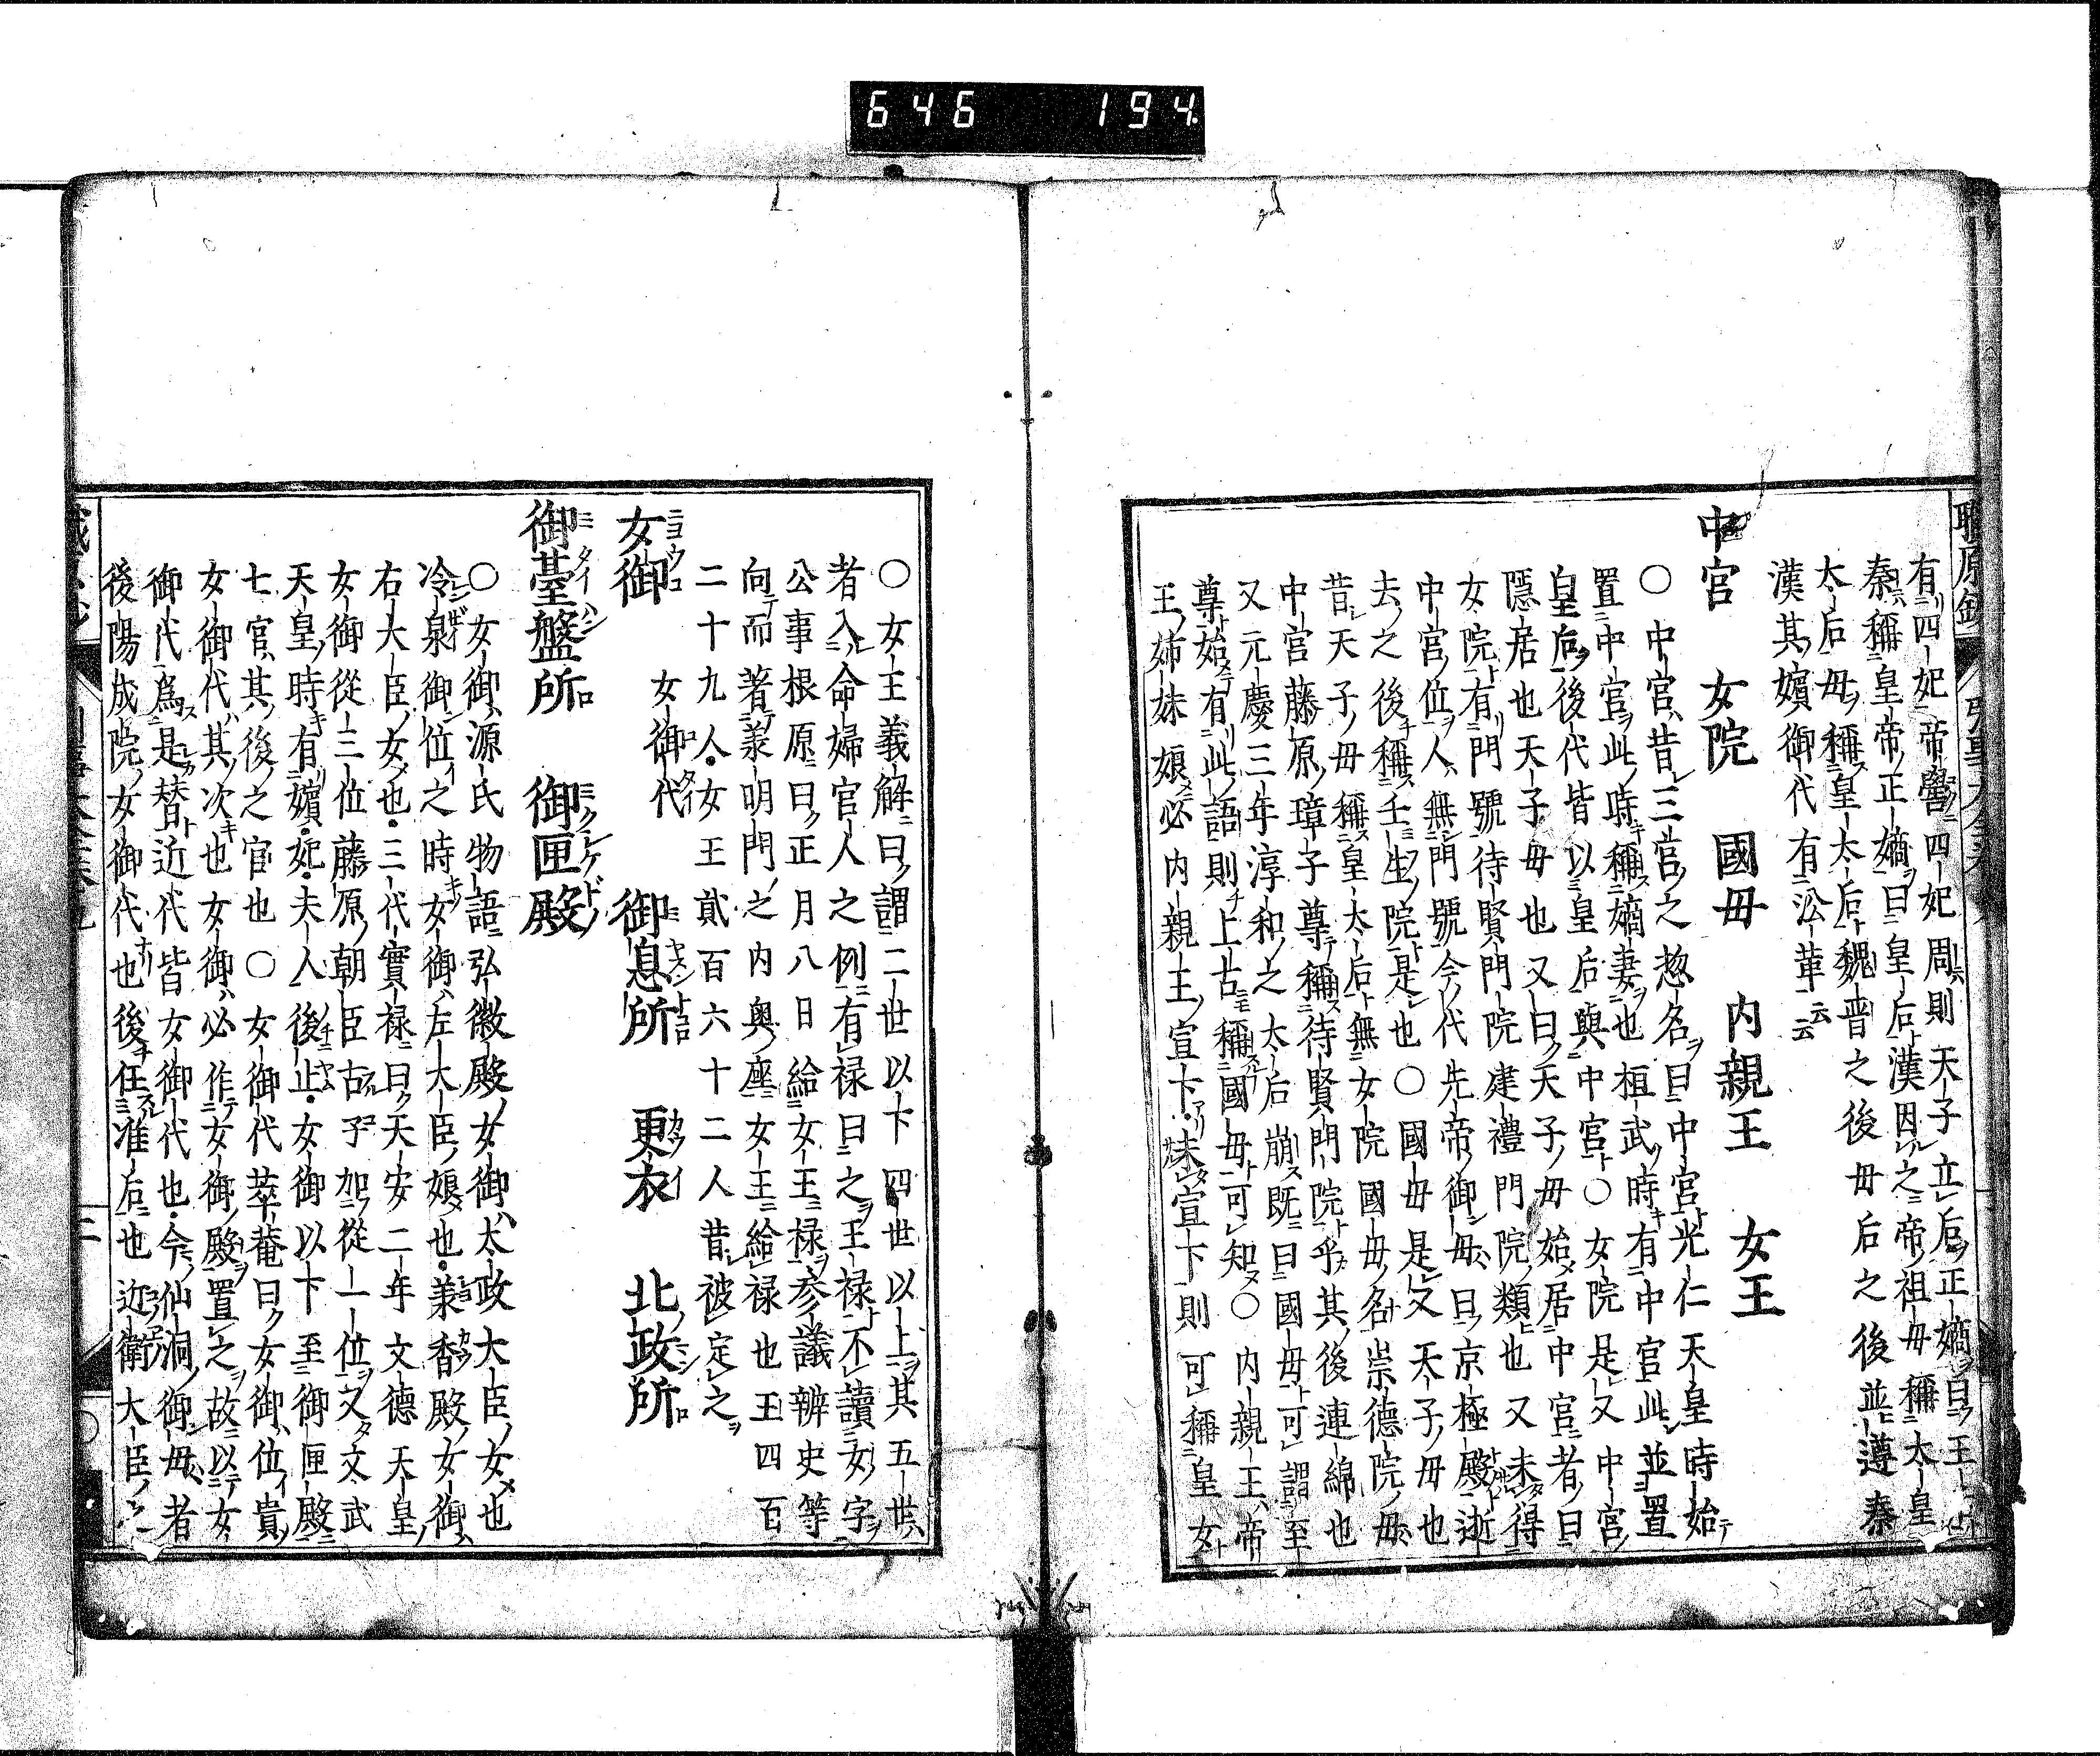 646 194
有四妃帝嚳四妃周則天子立后正嫡曰王
秦稱皇帝正嫡曰皇后漢因之帝祖母稱太皇
太后母稱皇太后魏晋之後母后之後並遵秦
漢其嬪御代有沿革云云
中宮 女院 國母 内親王 女王
○中宮昔三宮之惣名曰中宮光仁天皇時始
置中宮此時稱嫡妻也桓武時有中宮此並置
皇后後代皆以皇后與中宮○女院是又中宮
隱居也天子母也又曰天子母始居中宮者曰
女院有門號待賢門院建禮門院類也又未得
中宮位人無門號今代先帝御母曰京極殿逝
去之後稱壬生院是也○國母是又天子母也
昔天子母稱皇太后無女院國母名崇德院母
中宮藤原璋子尊稱待賢門院乎其後連綿也
又元慶三年淳和之太后崩既曰國母可謂至
尊始有此語則上古稱國母可知○内親王帝
王姉妹娘必内親王宣下未宣下則可稱皇女
○女王義解曰謂二世以下四世以上其五世
者入命婦官人之例有禄曰之王禄不讀女字
公事根原曰正月八日給女王禄参議辨史等
向而著羕明門之内奥座女王給禄也王四百
二十九人女王貳百六十二人昔被定之
女御 女御代 御息所 更衣 北政所
御臺盤所 御匣殿
○女御源氏物語弘徽殿女御太政大臣女也
冷泉御位之時女御左大臣娘也羕香殿女御
右大臣女也三代實禄曰天安二年文德天皇
女御從三位藤原朝臣古子加從一位又文武
天皇時有嬪妃夫人後止女御以下至御匣殿
七官其後之官也○女御代萃菴曰女御位貴
女御代其次也女御必作女御殿置之故以女
御代爲是替近代皆女御代也今仙洞御母者
後陽成院女御代也後任准后也近衛大臣之